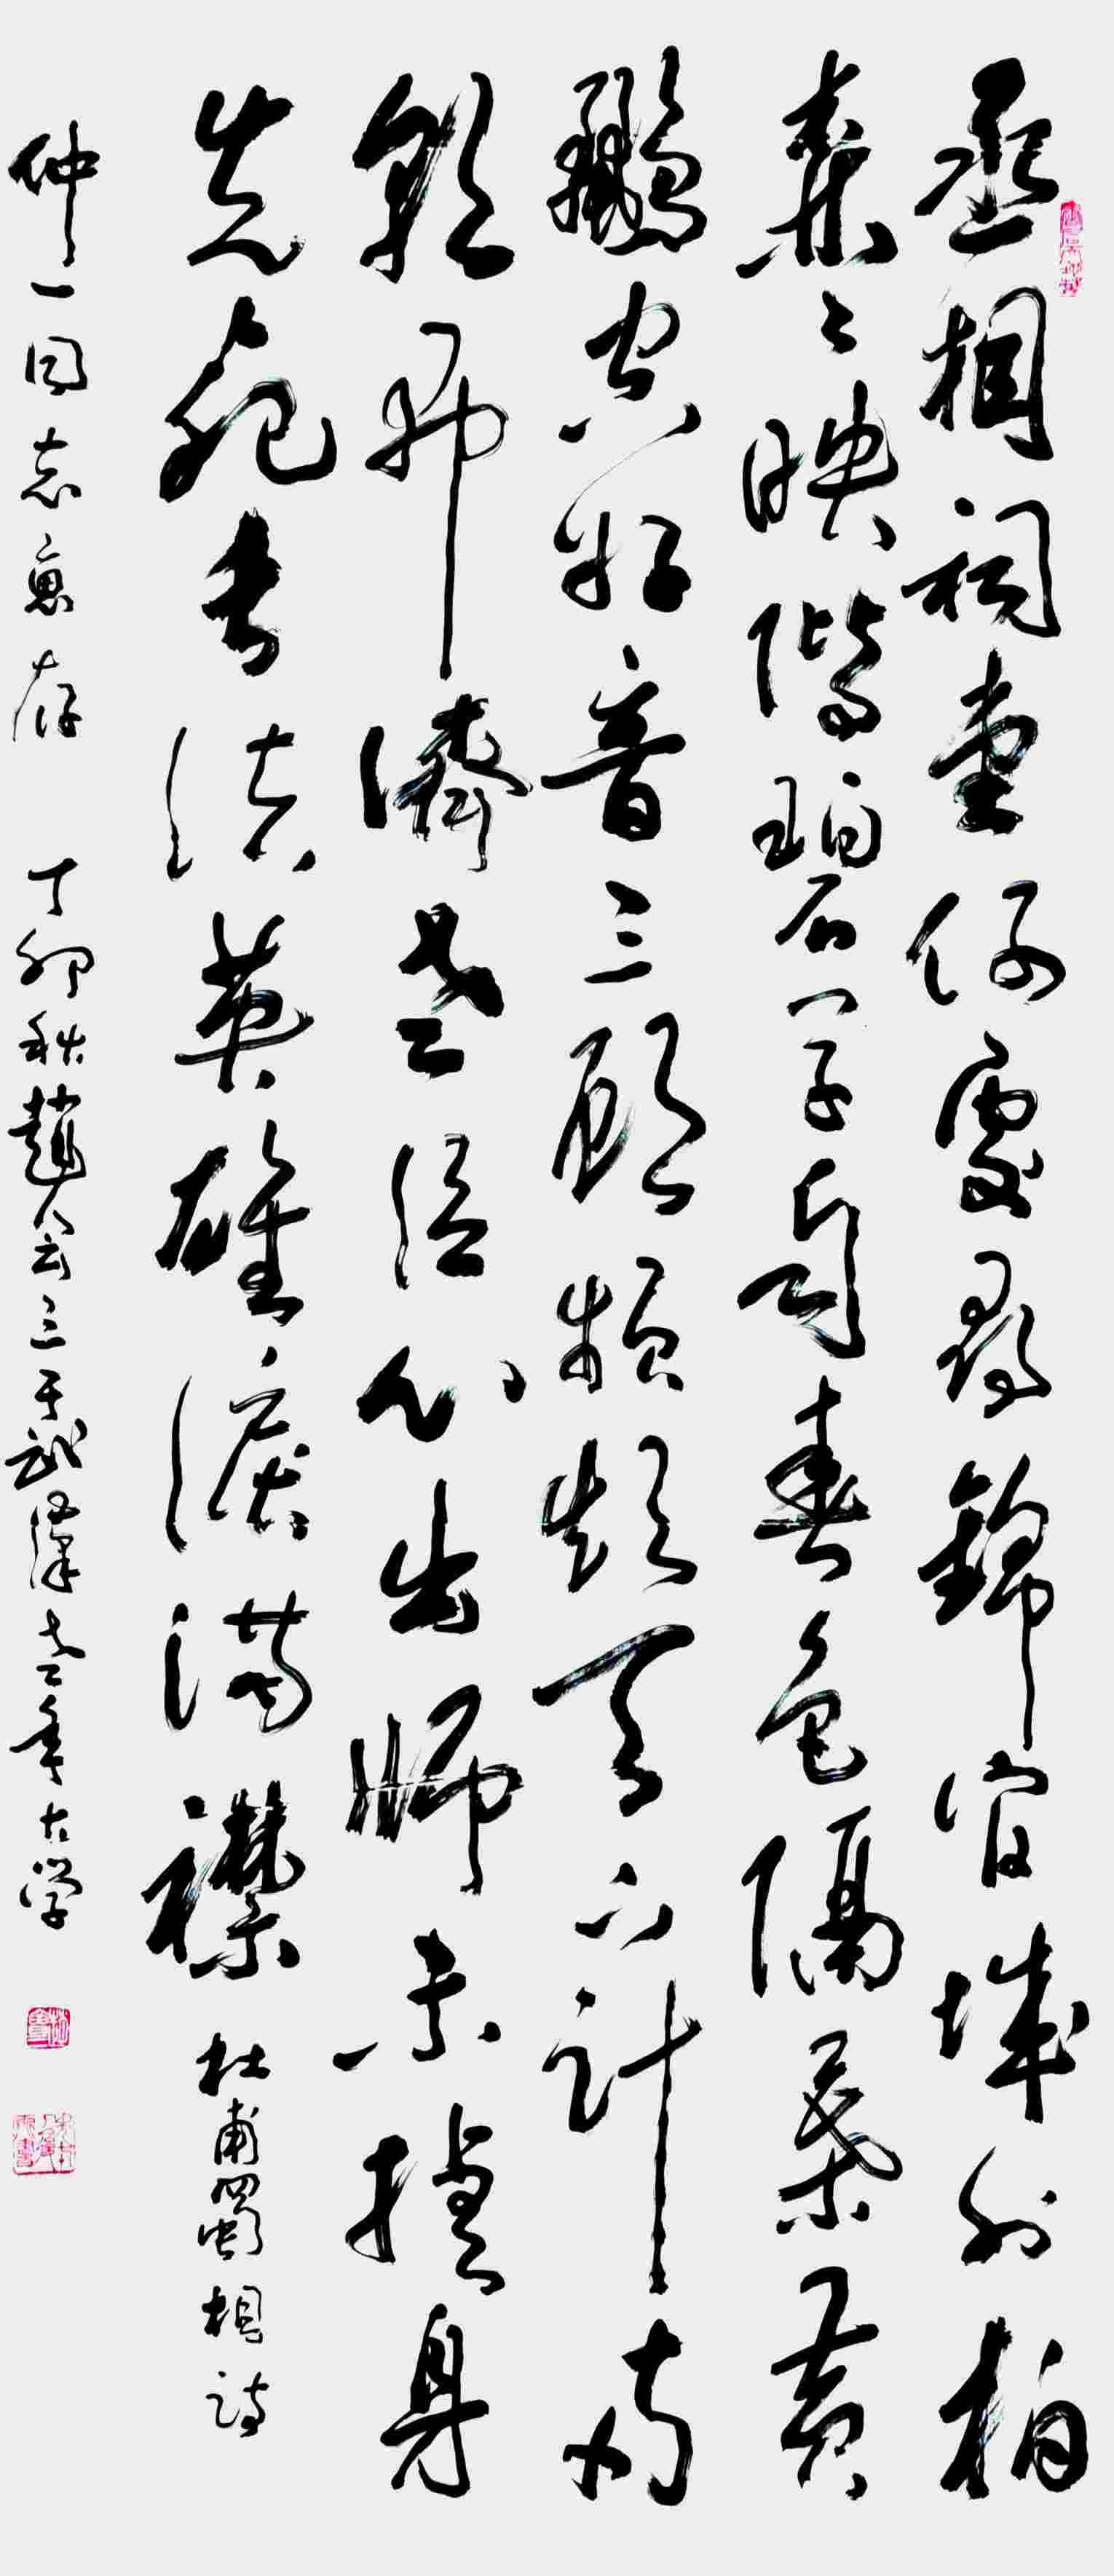 丞相祠堂何處尋錦官城外柏
森々映階碧草自春色隔葉黃
鸝空好音三顧頻煩天下計兩
朝开濟老臣心出師未捷身
先死長使英雄淚滿襟 杜甫蜀相詩
仲一同志惠存 丁卯秋趙会三于武漢老年大学